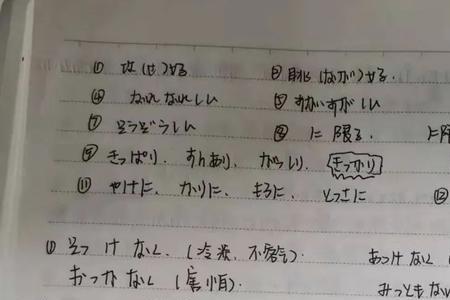 ① 攻(せ)める ② 眺(なが)める.
④ なれなれしい ⑤ すがすがしい
⑦ そうぞうしい ⑧ に限る. に限
⑨ きっぱり、すんなり、がっしり、きっかり
⑪ やけに、かりに、もろに、とっさに ⑫
① そっけなく.(冷淡、不客气). あっけなく(
おっかなく(害怕). みっともな